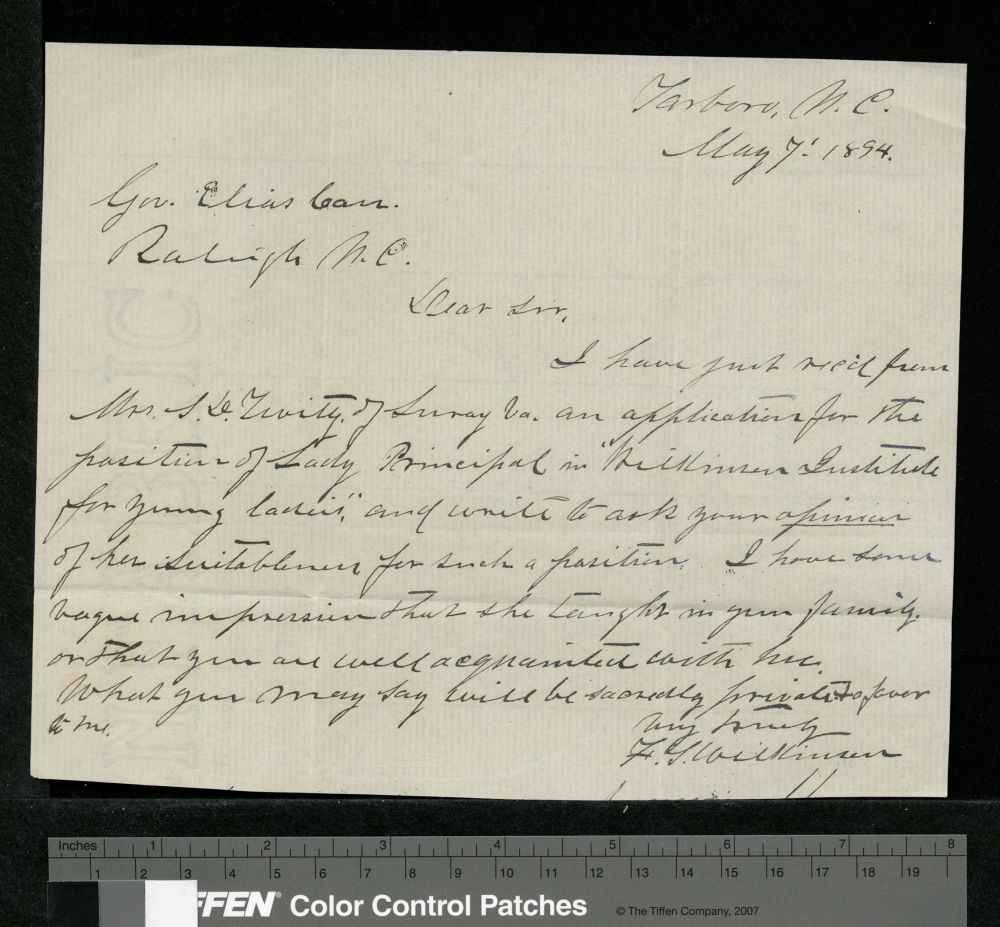 Tarboro, N. C.
May 7: 1894.
Gov. Elias Carr.
Raleigh N. C.
Dear Sir,
I have just rec'd from
Mrs. S. D. of Luray Va. an application for the
position of Lady Principal in "Wilkinson Institute
for young ladies", and write to ask your opinion
of her suitableness for such a position. I have some
vague impression that she taught in your family.
or that you are well acquainted with her.
What you may say will be sacredly private & a favor
to me.
Very truly
F. S. Wilkinson
Inches 1 2 3 4 5 6 7 8
1 2 3 4 5 6 7 8 9 10 11 12 13 14 15 16 17 18 19
FFEN® Color Control Patches © The Tiffen Company, 2007